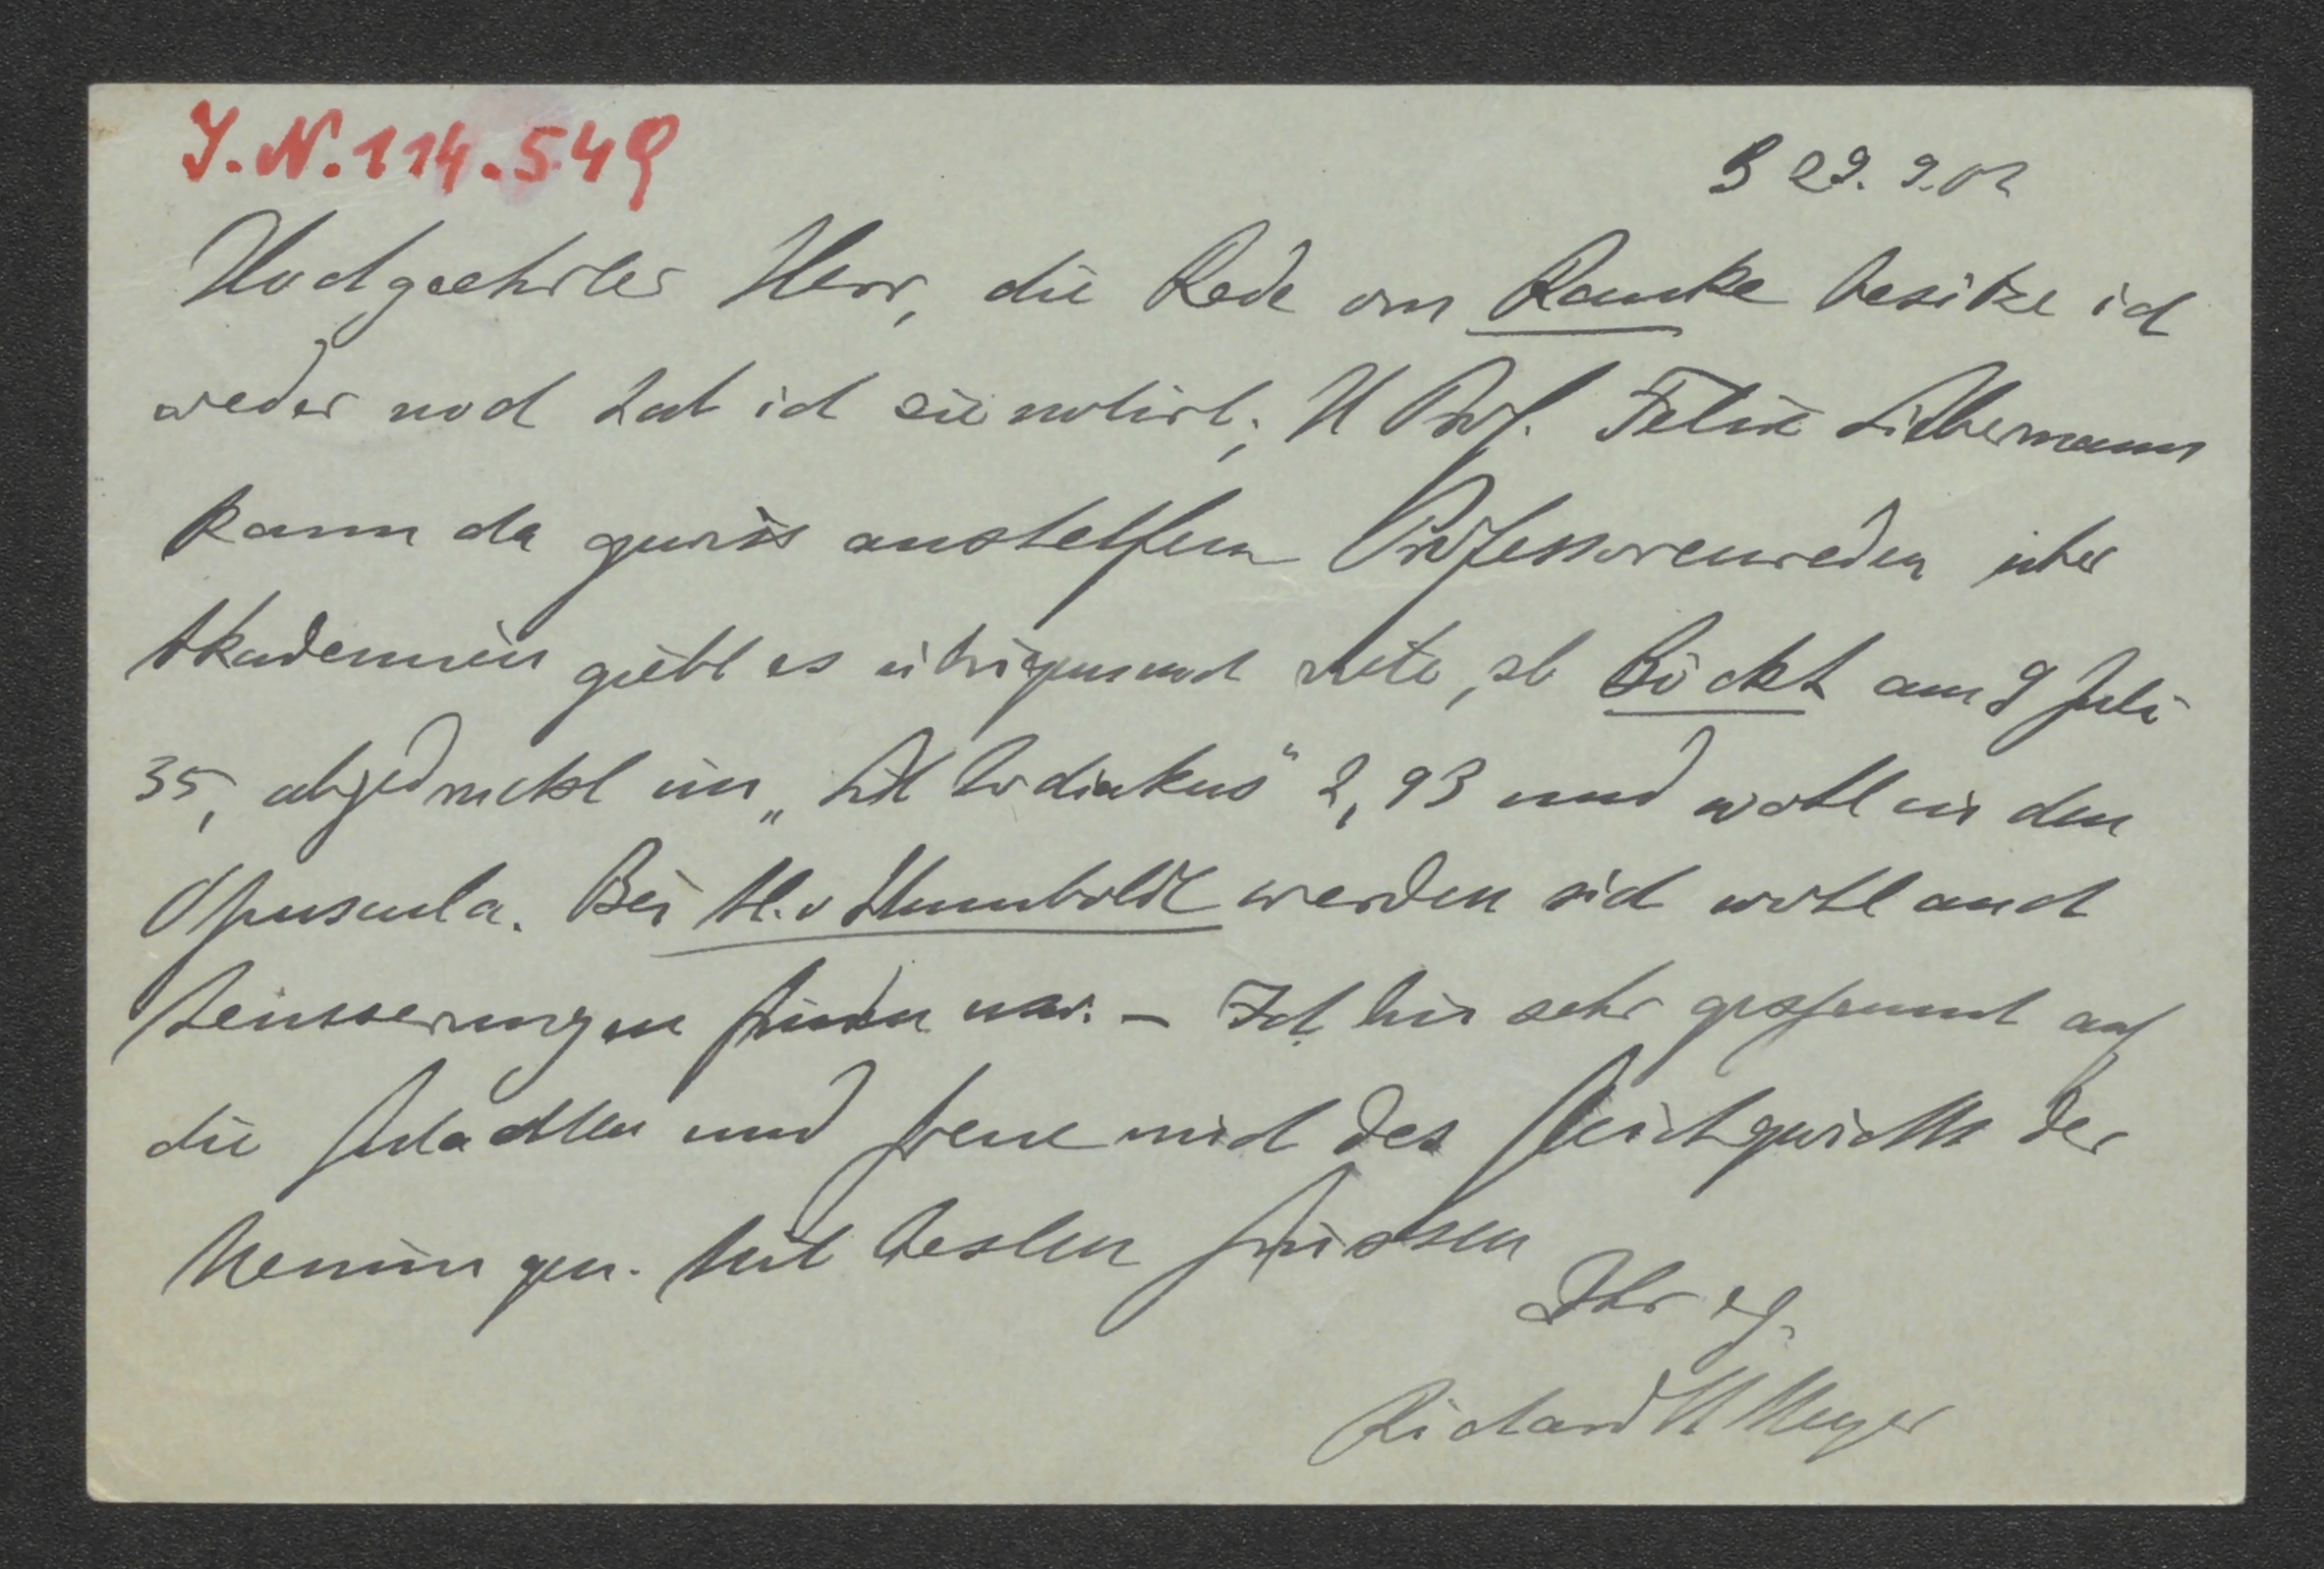 I.N. 114.549
B 29. 9. 02
Hochgeehrter Herr, die Rede von Ranke besitze ich
weder noch hab ich sie notirt; H Prof. Felix Liebermann
kann da gewiss aushelfen Professorenreden über
Akademien giebt es übrigens noch mehr, so Böckh am 9 Juli
35, abgedruckt im „Litt Zodiakus" 2, 93 und wohl in den
Opuscula. Bei A. v Humboldt werden sich wohl auch
Aeusserungen finden usw. – Ich bin sehr gespannt auf
die Gutachten und freue mich des Gleichgewichts der
Meinungen. Mit besten Grüssen
Ihr erg.
Richard M Meyer